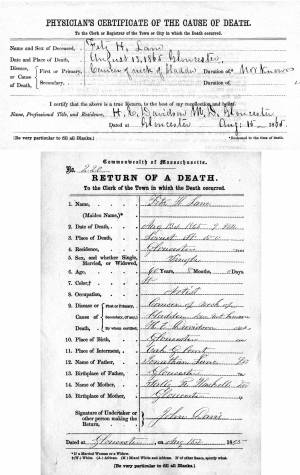 PHYSICIAN'S CERTIFICATE OF THE CAUSE OF DEATH.
To the Clerk or Registrar of the Town or City in which the Death occurred.
Name and Sex of Deceased, Fitz H. Lane
Date and Place of Death, August 13, 1865 Gloucester
Disease, First or Primary, Cancer of neck of bladder Duration of Not Known
or Cause of Death, Secondary, Duration of
I certify that the above is a true Return, to the best of my recollection and belief.
Name, Professional Title, and Residence, H. E. Davidson M. D. Gloucester
Dated at Gloucester Aug. 15 1865.
(Be very particular to fill all Blanks.)
Commonwealth of Massachusetts.
No. 220
RETURN OF A DEATH.
To the Clerk of the Town in which the Death occurred.
1. Name, Fitz H. Lane
(Maiden Name,)*
2. Date of Death, Aug 13th 1865
3. Place of Death,
4. Residence, Gloucester
5. Sex, and whether Single, Married, or Widowed, Single
6. Age, Years Months Days
7. Color,†
8. Occupation, Artist
9. Disease or Cause of Death, First or Primary, Cancer of neck of
Secondary, (if any,) bladder
By whom certified, H. E. Davidson
10. Place of Birth, Gloucester
11. Place of Interment,
12. Name of Father, Jonathan Lane
13. Birthplace of Father, Gloucester
14. Name of Mother,
15. Birthplace of Mother, Gloucester
Signature of Undertaker or other person making the Return, John
Dated at Gloucester on Aug 15th 1865
* If a Married Woman or a Widow.
(Be very particular to fill all Blanks.)